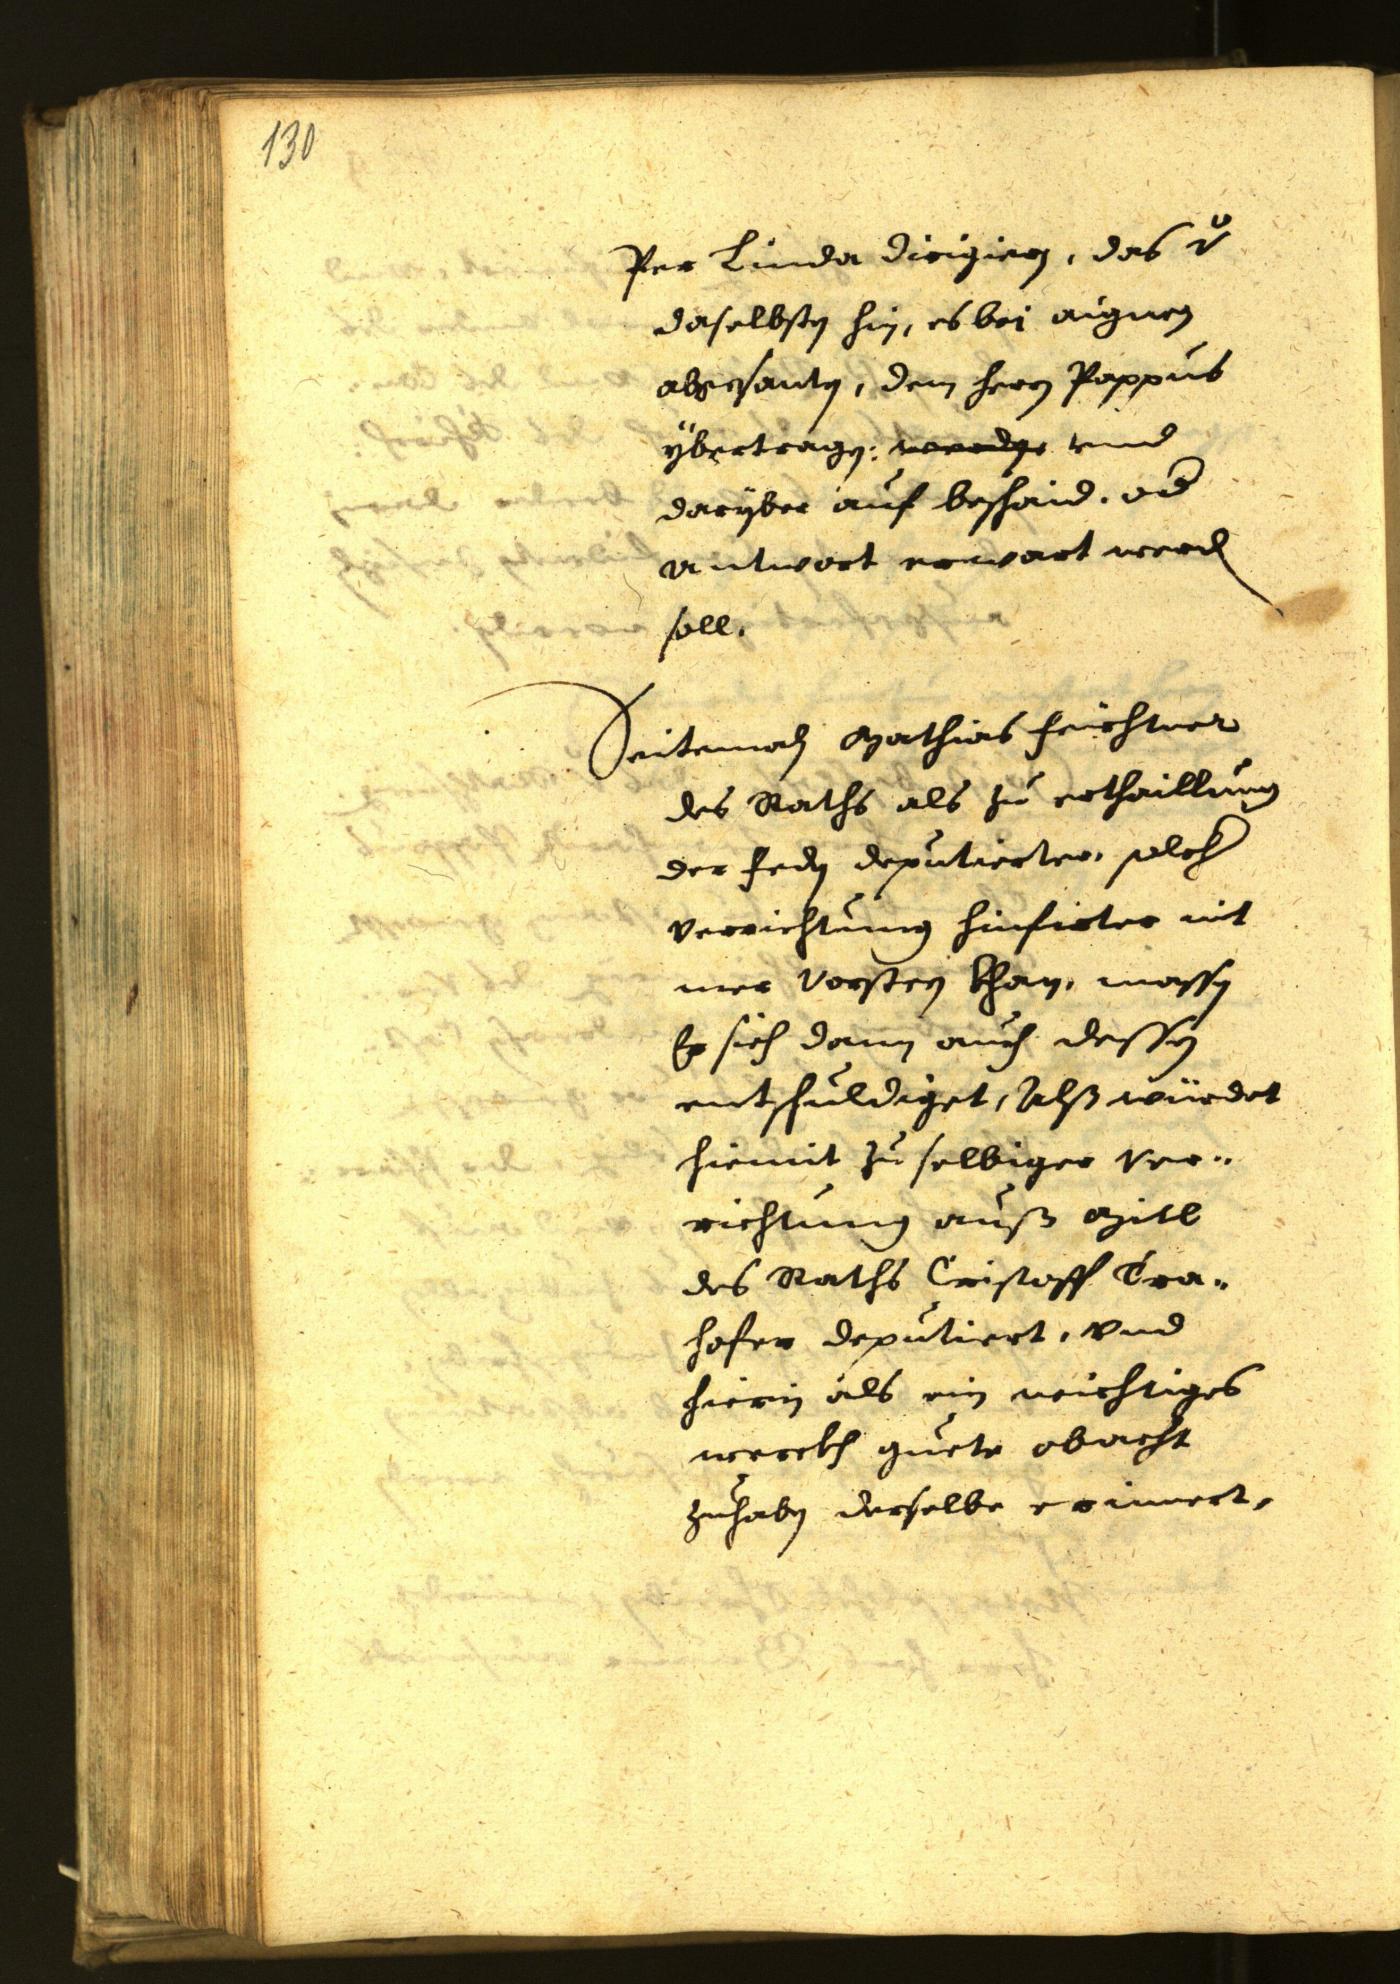 130
Per Linda dirigiern, das
daselbsten hin, es bei aignen
abgesanten, dem hern Pappus
ybertragen: und
daryber auf beshaid, oder
antwort erwart werden
soll.
Seitemaln Mathias Feichtner
des Raths als zu erthaillung
der Feden deputierter, solcher
verrichtung hinfirter nit
mer Vorsten khan, massen
Er sich dann auch dessen
entschuldiget, Alß würdet
hiemit zu selbiger Ver-
richtung auß Mitl
des Raths Cristoff Tra-
hofer deputiert, Vnd
hierin als ein wichtiges
werckh guete obacht
zuhaben derselbe erinnert,